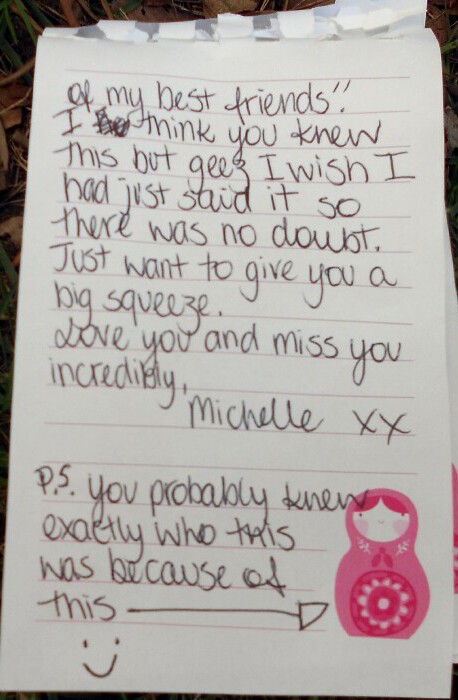 of my best friends".
I think you knew
this but geez I wish I
had just said it so
there was no doubt.
Just want to give you a
big squeeze.
Love you and miss you
incredibly,
Michelle xx
P.S. you probably knew
exactly who this
was because of
this